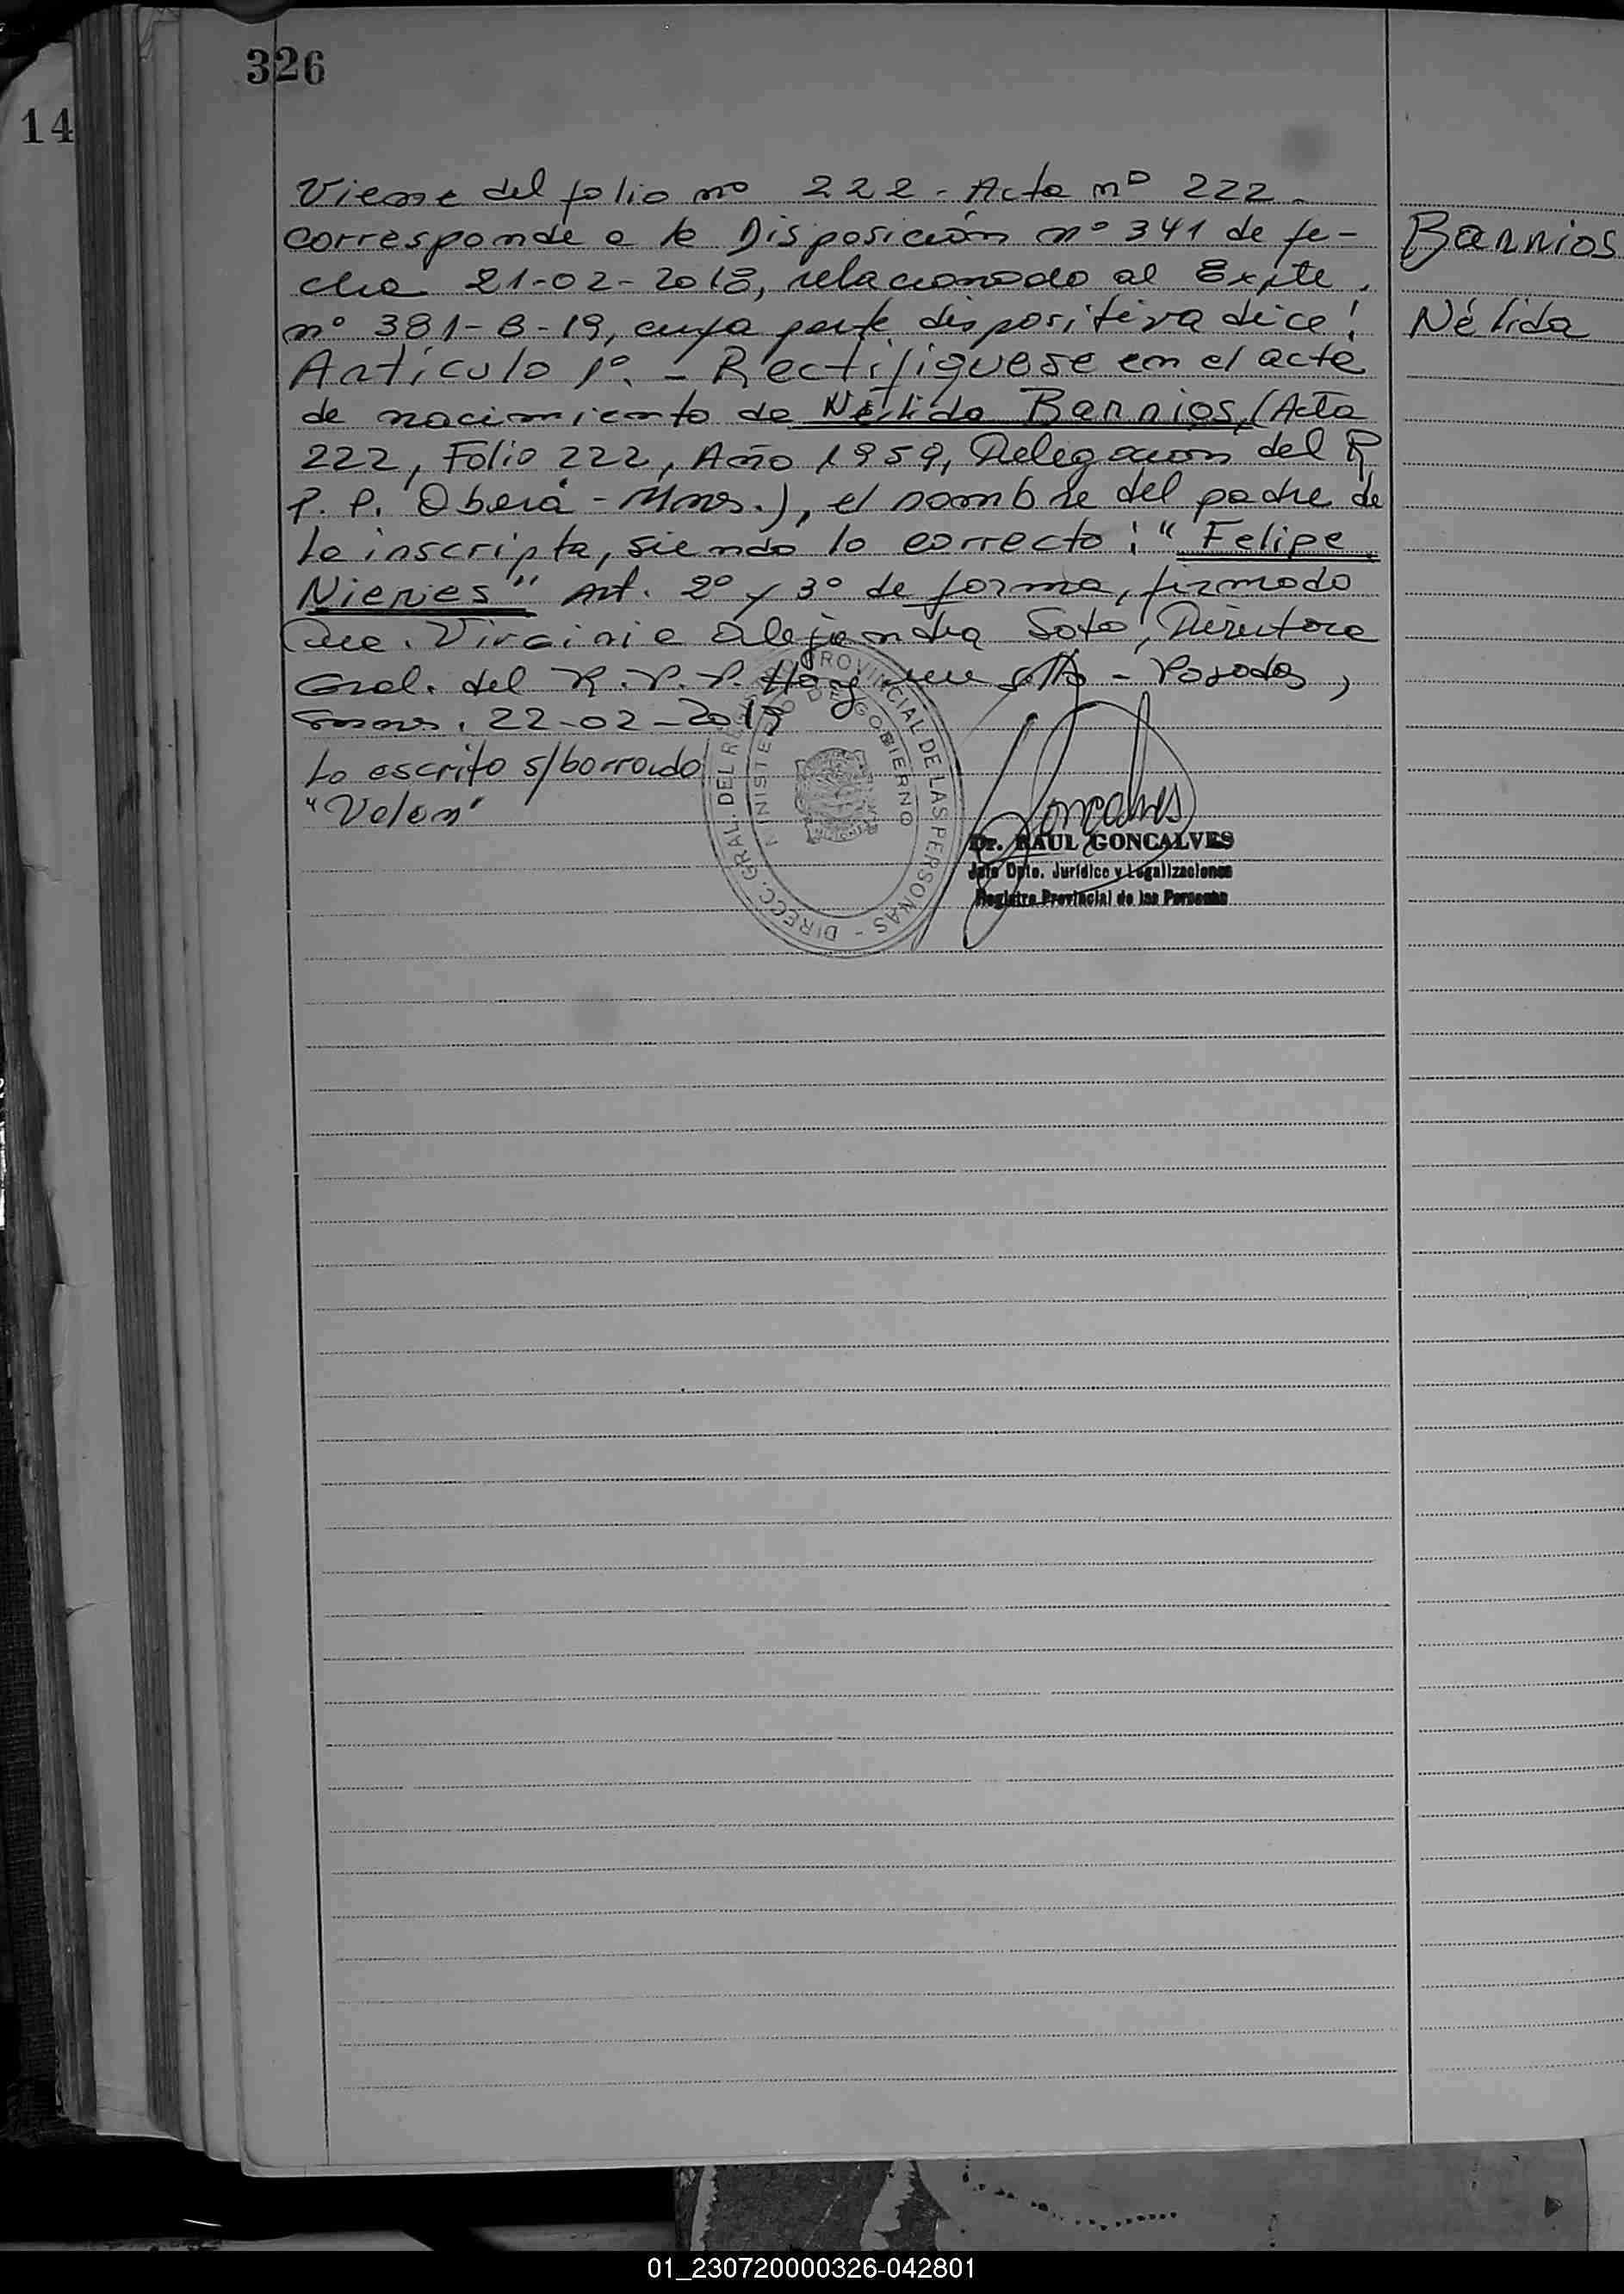 326
14
Viene del folio nº 222 - Acta nº 222 -
corresponde a la Disposición nº 341 de fe-
cha 21-02-2019, relacionado al Expte.
nº 381-B-19, cuya parte dispositiva dice:
Artículo 1º. - Rectifiquese en el acta
de nacimiento de Nélida Barrios, (Acta
222, Folio 222, Año 1959, Delegacion del R.
P. P. Oberá - Mnes.), el nombre del padre de
la inscripta, siendo lo correcto: "Felipe
Nieves" Art. 2º y 3º de forma, firmado
Virginia Alejandra Soto, Directora
Gral. del R.P.P. Hay un sello - Posadas,
22-02-2019
Lo escrito s/borrado
"Valen"
Barrios
Nélida
DIRECC. GRAL. DEL REGISTRO PROVINCIAL DE LAS PERSONAS -
MINISTERIO DE GOBIERNO
Goncalves
Dr. RAUL GONCALVES
Jefe Dpto. Jurídico y Legalizaciones
Registro Provincial de las Personas
01_230720000326-042801